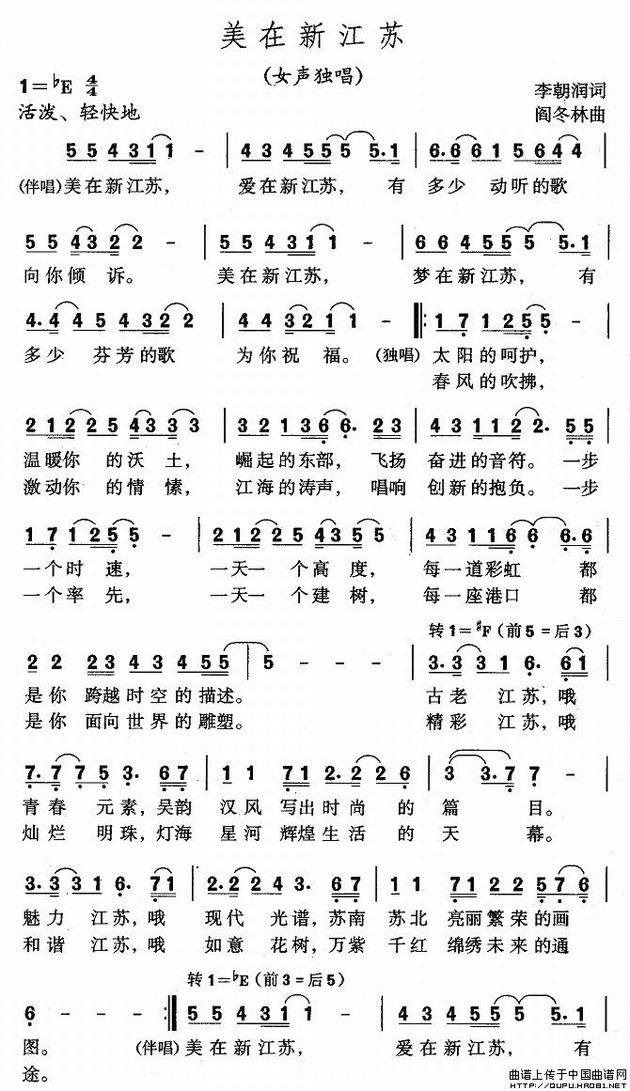 美在新江苏
(女声独唱)
1=♭E 4/4
李朝润词
活泼、轻快地
阎冬林曲
5 5 4 3 1 1 - | 4 3 4 5 5 5 5. 1 | 6. 6 6 1 5 6 4 4
(伴唱)美在新江苏, 爱在新江苏, 有 多少 动听的歌
5 5 4 3 2 2 - | 5 5 4 3 1 1 - | 6 6 4 5 5 5 5. 1
向你倾 诉。 美在新江苏, 梦在新江苏, 有
4. 4 4 5 4 3 2 2 | 4 4 3 2 1 1 - |: 1 7 1 2 5 5 -
多少 芬芳的歌 为你祝 福。 (独唱) 太阳的呵护,
春风的吹拂,
2 1 2 2 5 4 3 3 3 | 3 2 1 3 6 6. 2 3 | 4 3 1 1 2 2. 5 5
温暖你 的沃 土, 崛起的东部, 飞扬 奋进的音符。 一步
激动你 的情 愫, 江海的涛声, 唱响 创新的抱负。 一步
1 7 1 2 5 5 - | 2 1 2 2 5 4 3 5 5 | 4 3 1 1 6 6 6. 6
一个时 速, 一天一 个高 度, 每一道彩虹 都
一个率 先, 一天一 个建 树, 每一座港口 都
转1=♯F (前5=后3)
2 2 2 3 4 3 4 5 5 | 5 - - - | 3. 3 3 1 6. 6 1
是你 跨越时空的描述。 古老 江苏,哦
是你 面向世界的雕塑。 精彩 江苏,哦
7. 7 7 5 3. 6 7 | 1 1 7 1 2. 2 2 6 | 3 3. 7 7 -
青春 元素,吴韵 汉风 写出时尚 的 篇 目。
灿烂 明珠,灯海 星河 辉煌生活 的 天 幕。
3. 3 3 1 6. 7 1 | 2. 2 2 4 3. 6 7 | 1 1 7 1 2 2 5 7 6
魅力 江苏,哦 现代 光谱,苏南 苏北 亮丽繁荣的画
和谐 江苏,哦 如意 花树,万紫 千红 绵绣未来的通
转1=♭E (前3=后5)
6 - - - :| 5 5 4 3 1 1 - | 4 3 4 5 5 5 5. 1
图。 (伴唱)美在新江苏, 爱在新江苏, 有
途。
曲谱上传于中国曲谱网
HTTP://QUPU.HAO81.NET